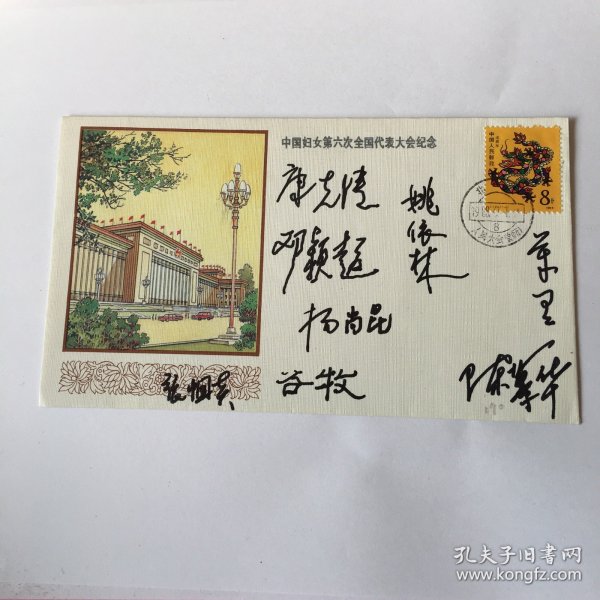 中国妇女第六次全国代表大会纪念
中国人民邮政
8分
康克清
邓颖超
杨尚昆
谷牧
姚依林
万里
陈慕华
8
孔夫子旧书网
www.kongfz.com